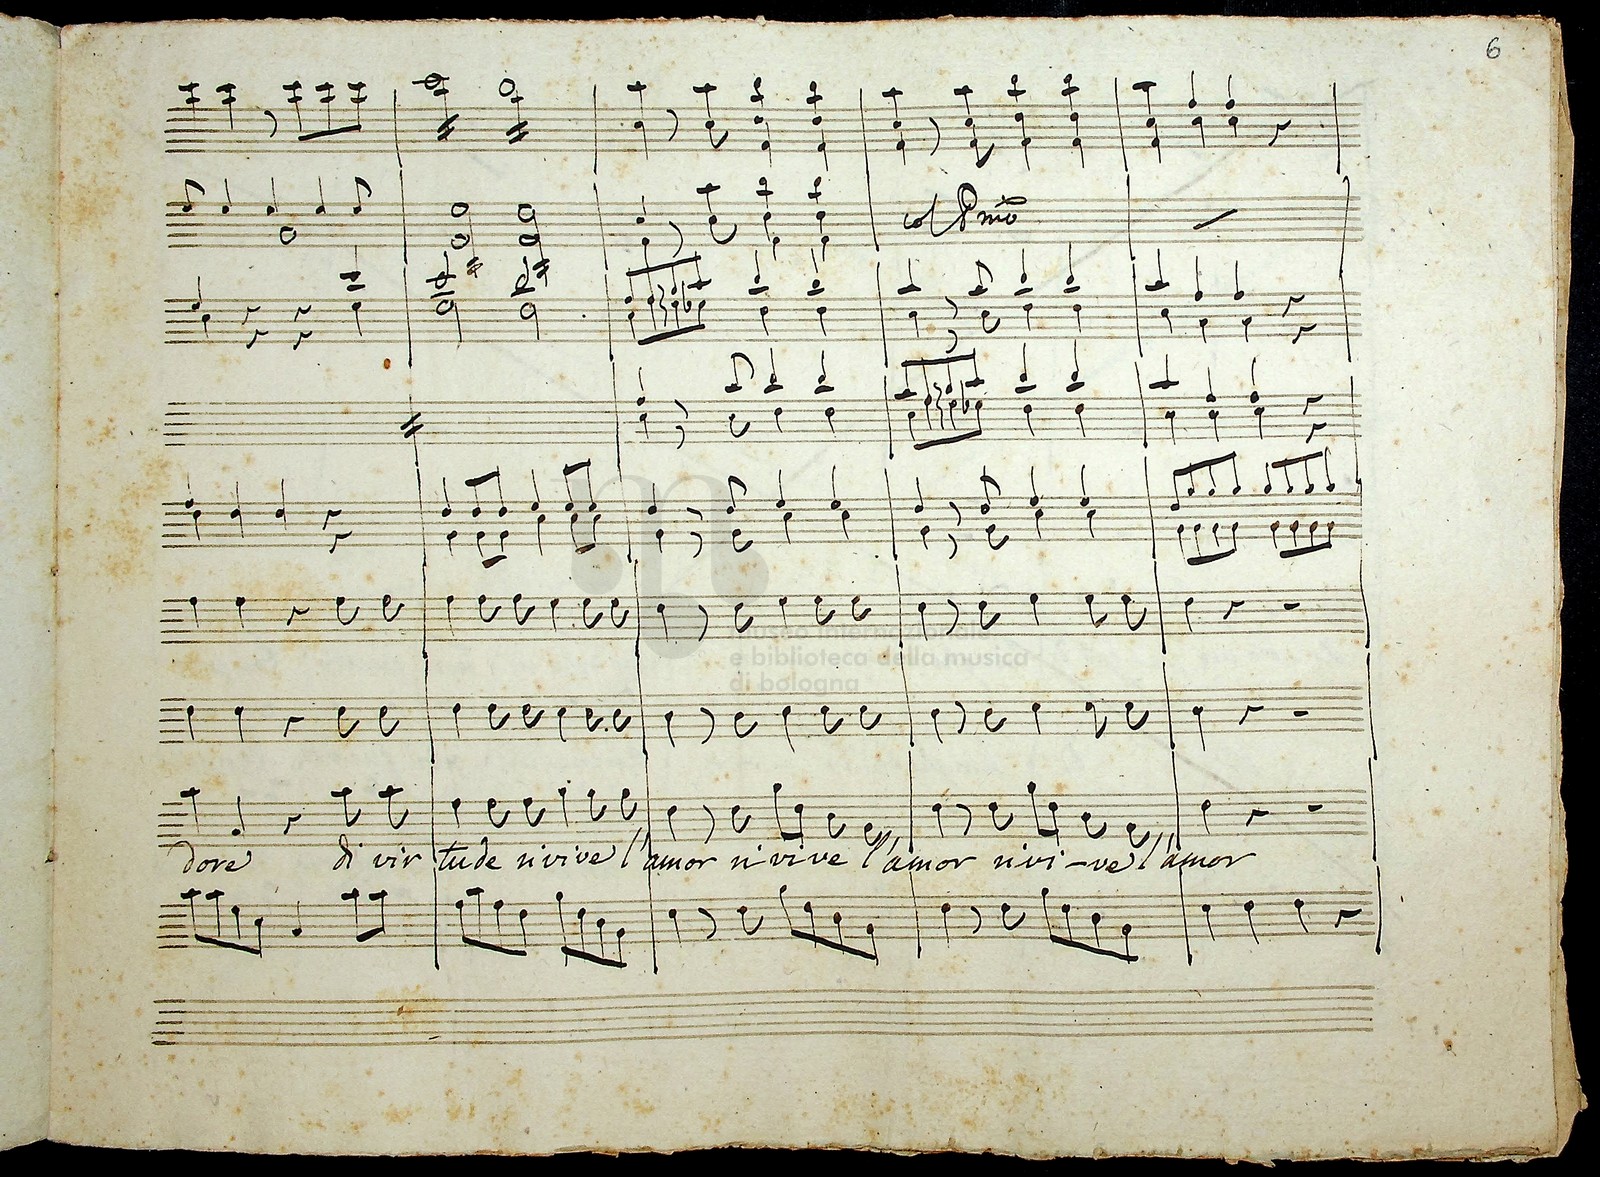 6
col Pmo
museo internazionale
e biblioteca della musica
di bologna
dore di vir tude vivive l'amor vivive l'amor vivi-ve l'amor